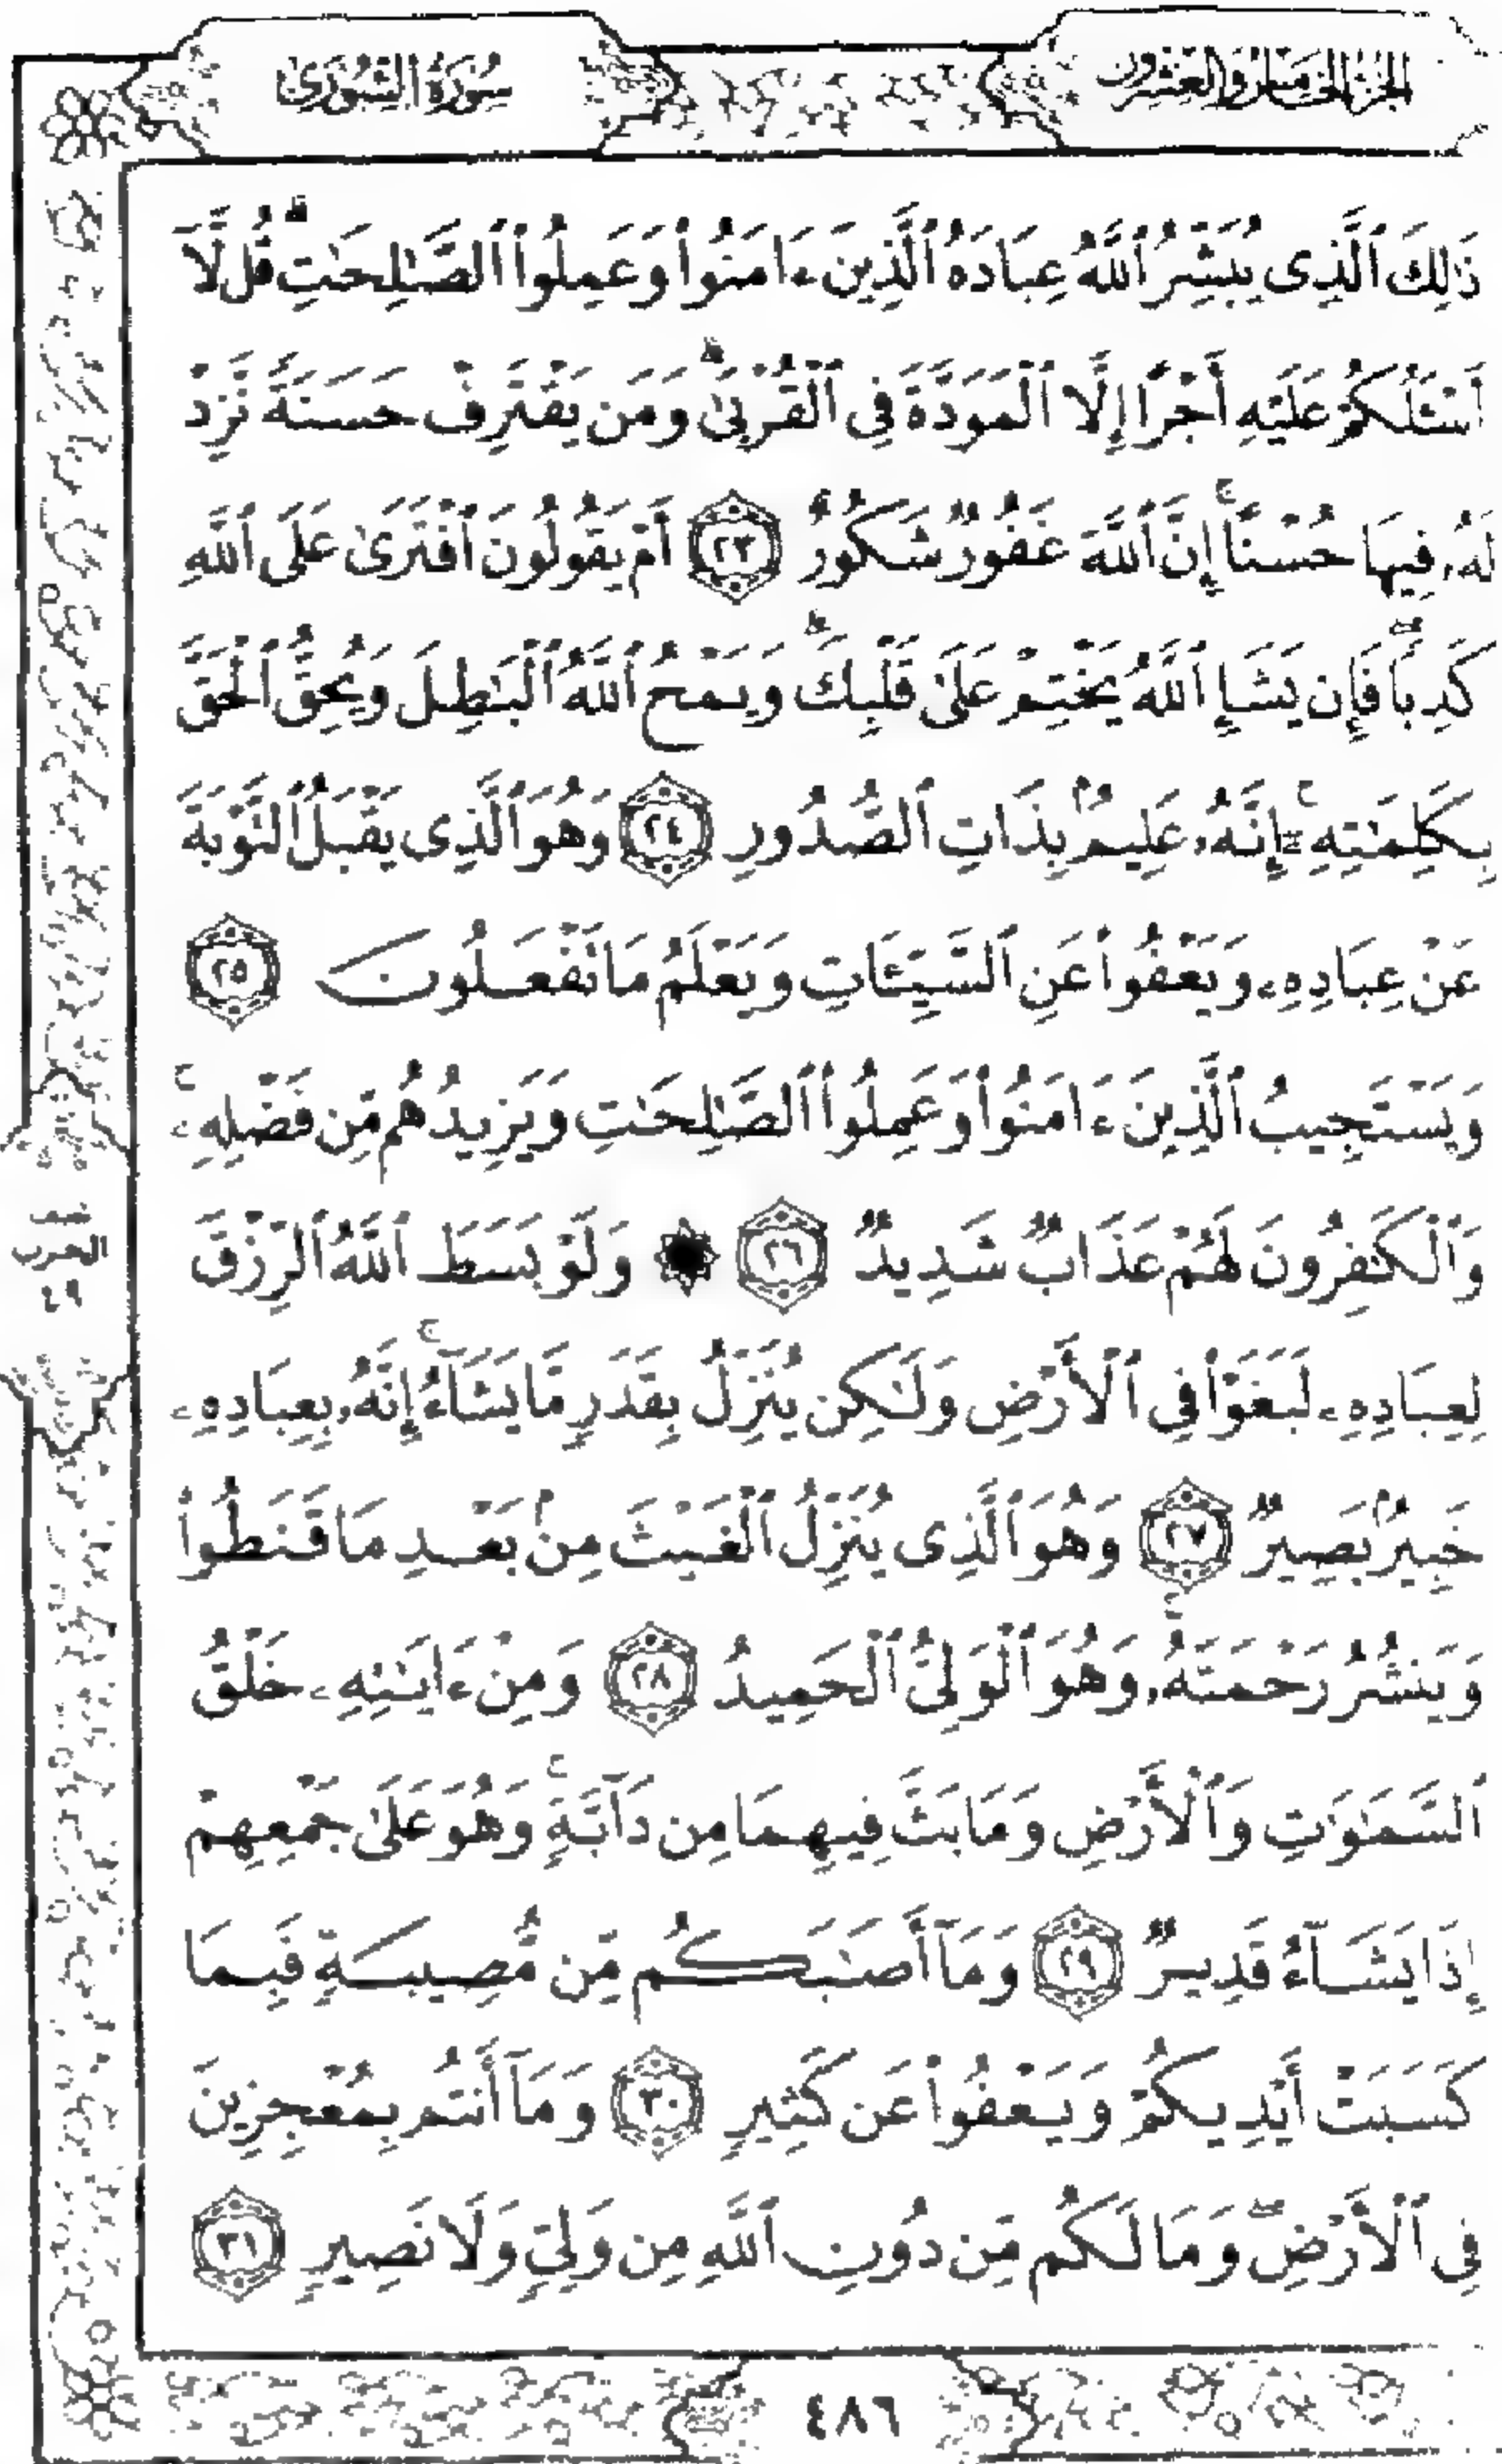 الجزء الخامس والعشرون
سورة الشورى
ذَٰلِكَ ٱلَّذِى يُبَشِّرُ ٱللَّهُ عِبَادَهُ ٱلَّذِينَ ءَامَنُوا۟ وَعَمِلُوا۟ ٱلصَّٰلِحَٰتِۗ قُل لَّآ
أَسْـَٔلُكُمْ عَلَيْهِ أَجْرًا إِلَّا ٱلْمَوَدَّةَ فِى ٱلْقُرْبَىٰۗ وَمَن يَقْتَرِفْ حَسَنَةً نَّزِدْ
لَهُۥ فِيهَا حُسْنًاۚ إِنَّ ٱللَّهَ غَفُورٌ شَكُورٌ ٢٣ أَمْ يَقُولُونَ ٱفْتَرَىٰ عَلَى ٱللَّهِ
كَذِبًاۖ فَإِن يَشَإِ ٱللَّهُ يَخْتِمْ عَلَىٰ قَلْبِكَۗ وَيَمْحُ ٱللَّهُ ٱلْبَٰطِلَ وَيُحِقُّ ٱلْحَقَّ
بِكَلِمَٰتِهِۦٓۚ إِنَّهُۥ عَلِيمٌۢ بِذَاتِ ٱلصُّدُورِ ٢٤ وَهُوَ ٱلَّذِى يَقْبَلُ ٱلتَّوْبَةَ
عَنْ عِبَادِهِۦ وَيَعْفُوا۟ عَنِ ٱلسَّيِّـَٔاتِ وَيَعْلَمُ مَا تَفْعَلُونَ ٢٥
وَيَسْتَجِيبُ ٱلَّذِينَ ءَامَنُوا۟ وَعَمِلُوا۟ ٱلصَّٰلِحَٰتِ وَيَزِيدُهُم مِّن فَضْلِهِۦۚ
وَٱلْكَٰفِرُونَ لَهُمْ عَذَابٌ شَدِيدٌ ٢٦ ۞ وَلَوْ بَسَطَ ٱللَّهُ ٱلرِّزْقَ
لِعِبَادِهِۦ لَبَغَوْا۟ فِى ٱلْأَرْضِ وَلَٰكِن يُنَزِّلُ بِقَدَرٍ مَّا يَشَآءُۚ إِنَّهُۥ بِعِبَادِهِۦ
خَبِيرٌۢ بَصِيرٌ ٢٧ وَهُوَ ٱلَّذِى يُنَزِّلُ ٱلْغَيْثَ مِنۢ بَعْدِ مَا قَنَطُوا۟
وَيَنشُرُ رَحْمَتَهُۥۚ وَهُوَ ٱلْوَلِىُّ ٱلْحَمِيدُ ٢٨ وَمِنْ ءَايَٰتِهِۦ خَلْقُ
ٱلسَّمَٰوَٰتِ وَٱلْأَرْضِ وَمَا بَثَّ فِيهِمَا مِن دَآبَّةٍۚ وَهُوَ عَلَىٰ جَمْعِهِمْ
إِذَا يَشَآءُ قَدِيرٌ ٢٩ وَمَآ أَصَٰبَكُم مِّن مُّصِيبَةٍ فَبِمَا
كَسَبَتْ أَيْدِيكُمْ وَيَعْفُوا۟ عَن كَثِيرٍ ٣٠ وَمَآ أَنتُم بِمُعْجِزِينَ
فِى ٱلْأَرْضِۖ وَمَا لَكُم مِّن دُونِ ٱللَّهِ مِن وَلِىٍّ وَلَا نَصِيرٍ ٣١
الحزب
٤٩
٤٨٦